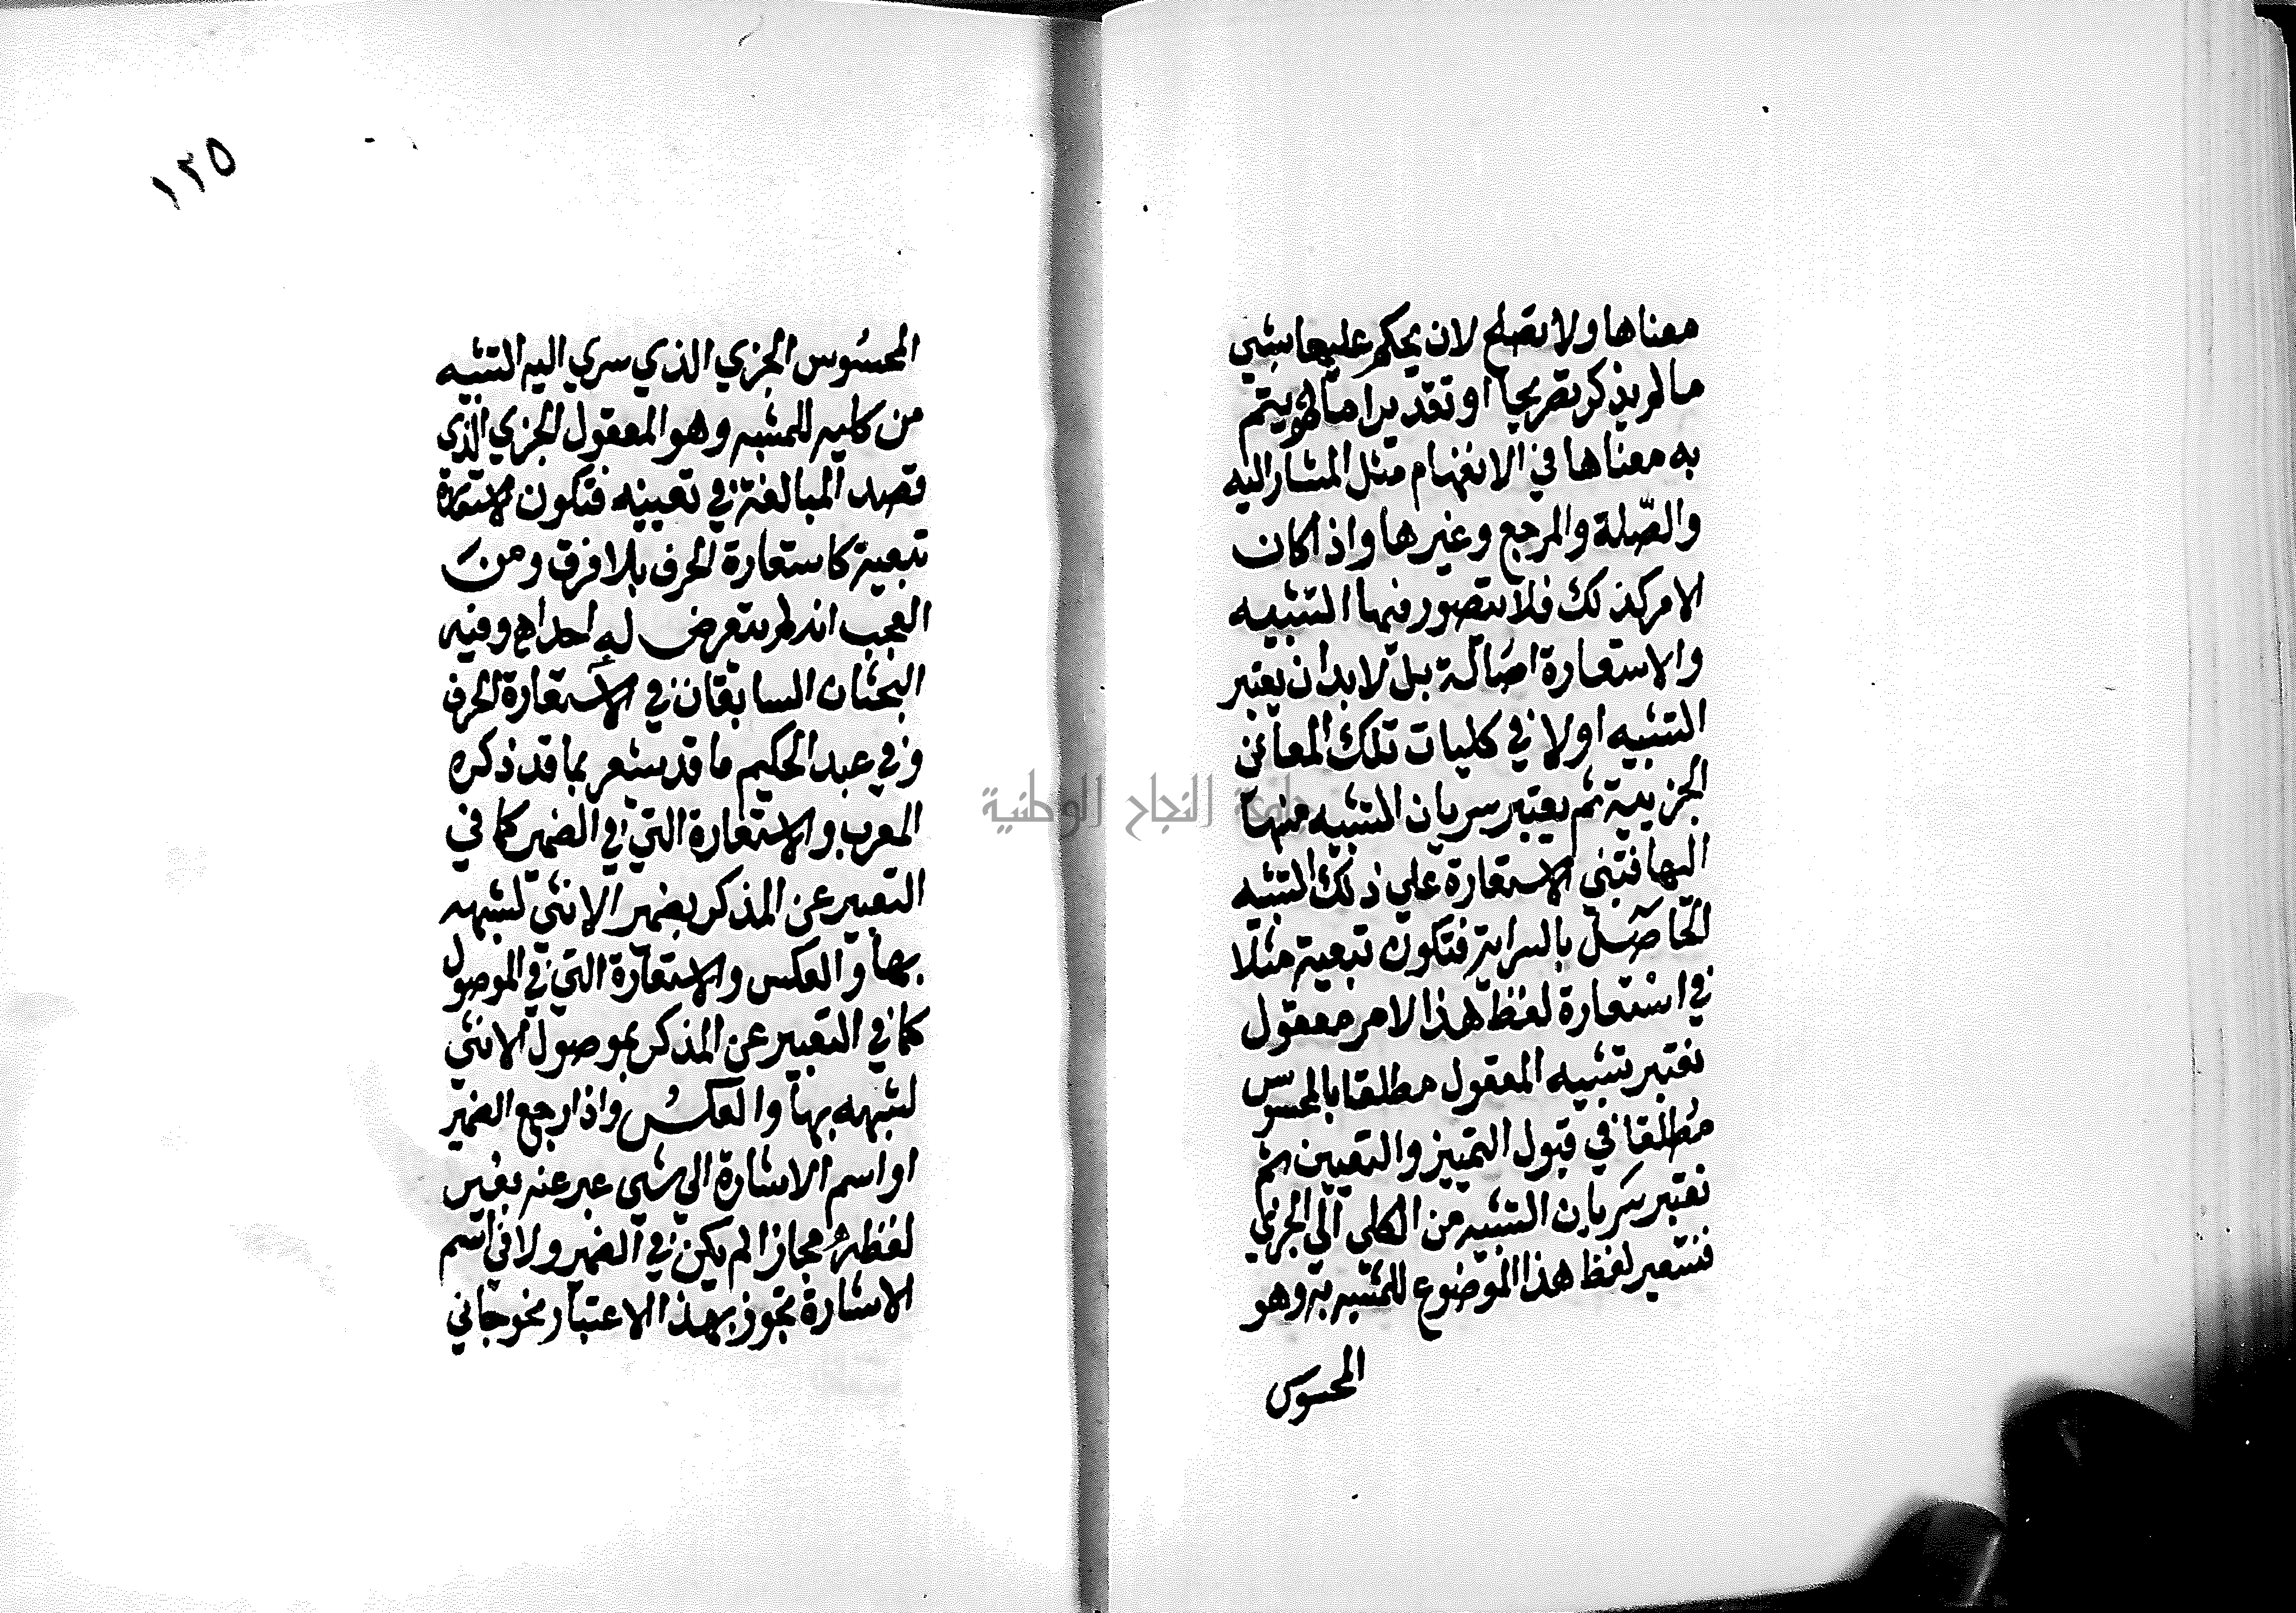 معناها ولا تصلح لان يحكم عليها بشي
ما لم يذكر تصريحا او تقديرا ما هو يتم
به معناها في الانفهام مثل المشار اليه
والصّلة والمرجع وغيرها واذا كان
الامر كذلك فلا يتصور فيها التشبيه
والاستعارة اصالة بل لا بد ان يعتبر
التشبيه اولا في كليات تلك المعاني
الجزيية ثم يعتبر سريان التشبيه منها
اليها فتبني الاستعارة علي ذلك التشبيه
الحاصل بالسراية فتكون تبعية مثلا
في استعارة لفظ هذا لامر معقول
نعتبر تشبيه المعقول مطلقا بالمحسوس
مطلقا في قبول التمييز والتعيين ثم
نعتبر سريان التشبيه من الكلي الي الجزيي
فنستعير لفظ هذا الموضوع للمشبه به وهو
المحسوس
١٢٥
المحسوس الجزي الذي سري اليه التشبيه
من كليه للمشبه وهو المعقول الجزي الذي
قصد المبالغة في تعيينه فتكون الاستعارة
تبعية كاستعارة الحرف بلا فرق ومن
العجب انه لم يتعرض له احد اه وفيه
البحثان السابقان في الاستعارة الحرف
وفي عبد الحكيم ما قد يشعر بما قد ذكره
المعرب والاستعارة التي في الضمير كما في
التعبير عن المذكر بضمير الانثي لشبهه
بها والعكس والاستعارة التي في الموصول
كما في التعبير عن المذكر بموصول الانثي
لشبهه بها والعكس واذا رجع الضمير
او اسم الاشارة الي شي عبر عنه بغير
لفظه مجازا لم يكن في الضمير ولا في اسم
الاشارة تجوز بهذا الاعتبار نحو جاني
جامعة النجاح الوطنية